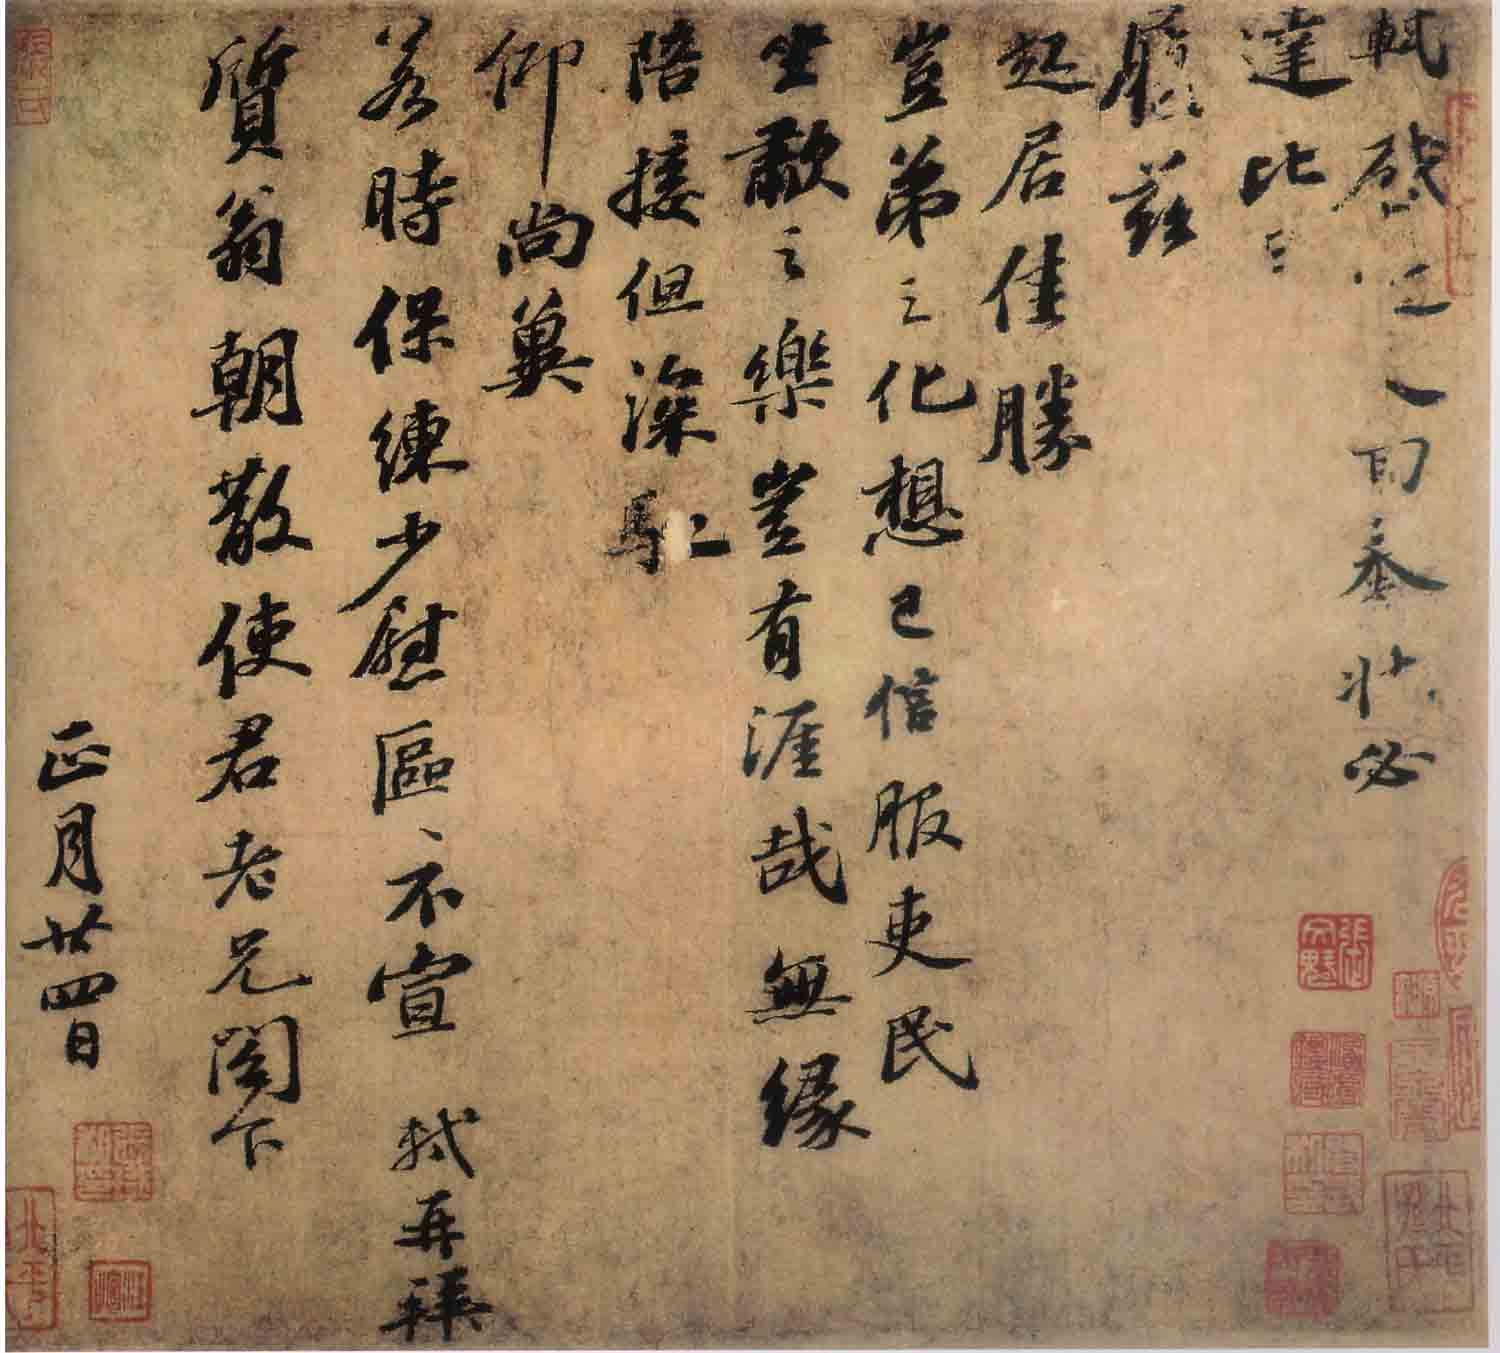 軾啟近人回奉狀必
達比
履茲
起居佳勝
豈弟之化想已信服吏民
坐歗之樂豈有涯哉無緣
陪接但深馳
仰尚冀
若時保練少慰區々不宣 軾再拜
質翁朝散使君老兄閣下
正月廿四日